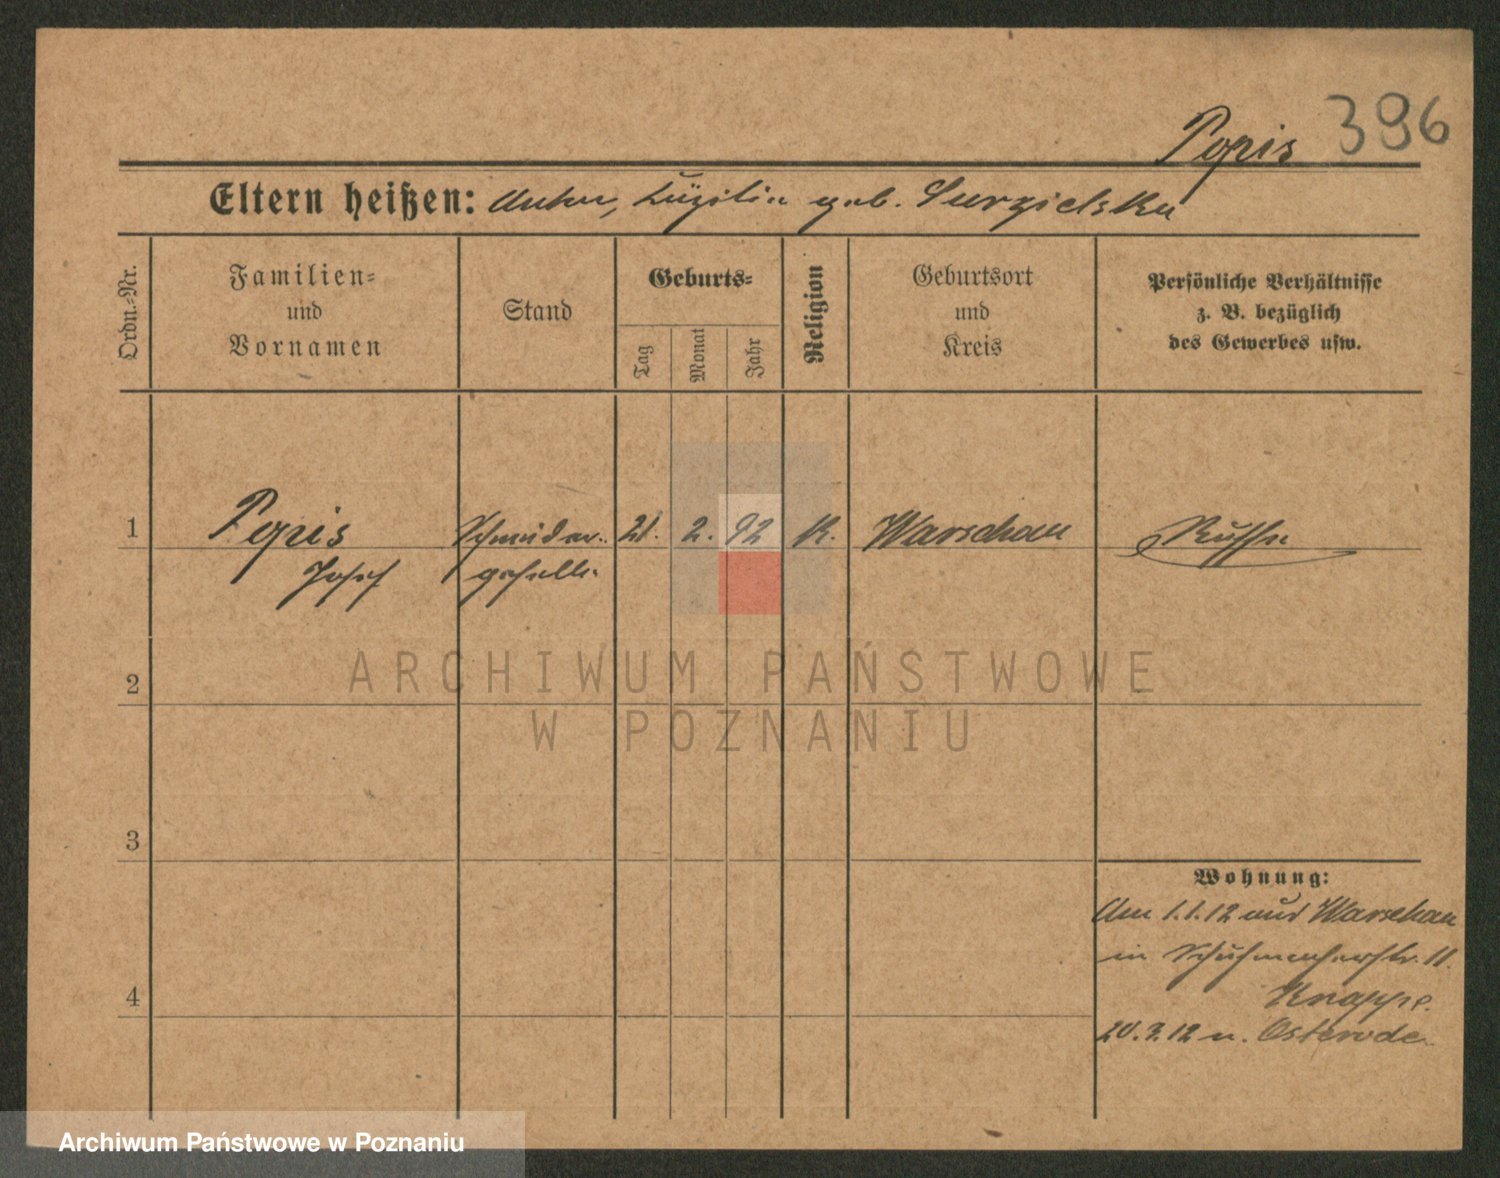 396
Popis
Eltern heißen: Anton, Cäzilia geb. Surzielska
Ordn.-Nr.
Familien-
und
Vornamen
Stand
Geburts-
Tag
Monat
Jahr
Religion
Geburtsort
und
Kreis
Persönliche Verhältnisse
z. B. bezüglich
des Gewerbes usw.
1 Popis Schneider- 21. 2. 92 K. Warschau Russe
Josef geselle
2
ARCHIWUM PAŃSTWOWE
W POZNANIU
3
Wohnung:
Am 1.1.12 aus Warschau
in Schuhmacherstr. 11.
4
Knappe.
20.2.12 n. Osterode
Archiwum Państwowe w Poznaniu